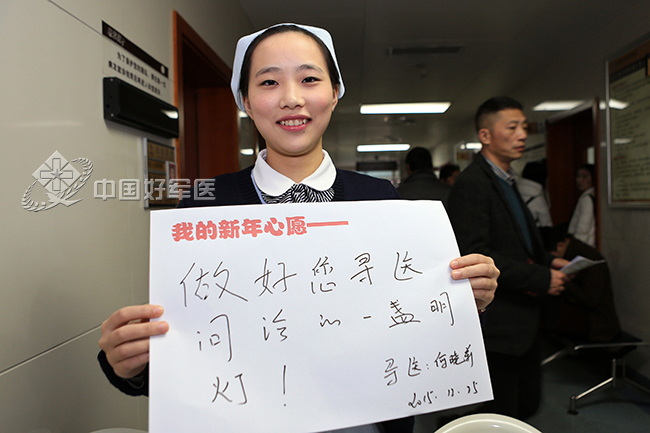 中国好军医
我的新年心愿——
做好您寻医
问诊的一盏明
灯！
导医：何晓莉
2015.12.25